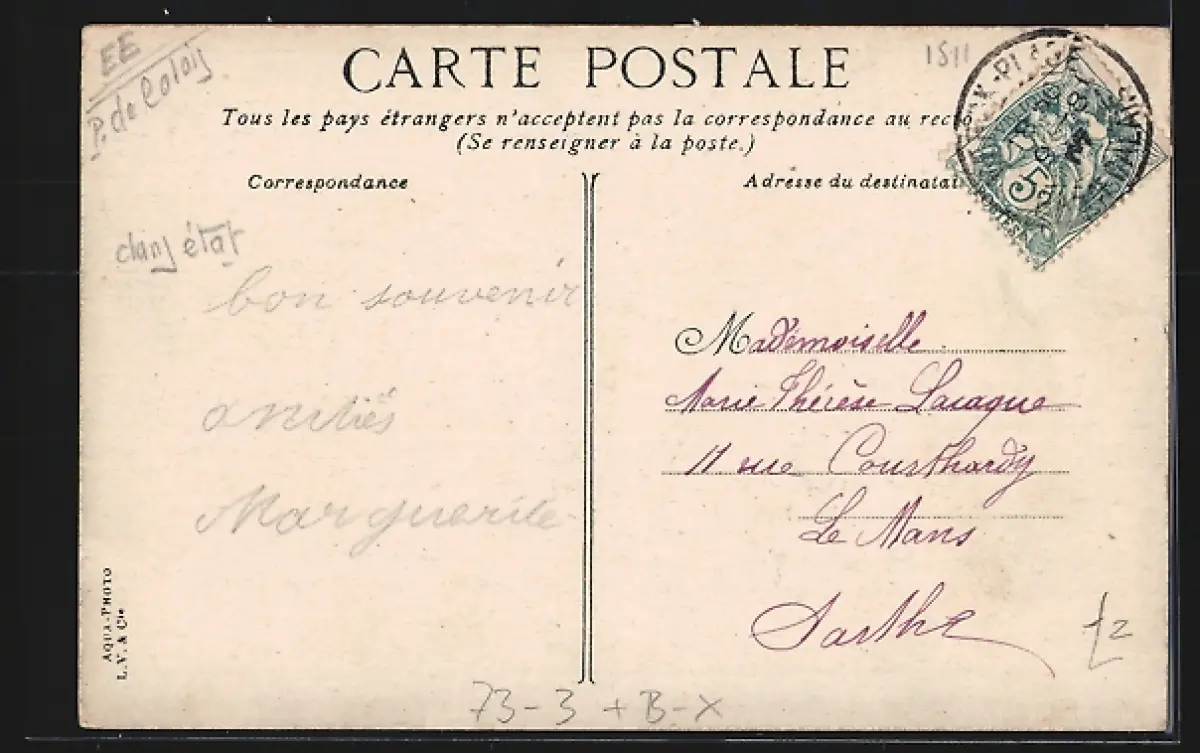 EE
P. de Calais
1511
CARTE POSTALE
Tous les pays étrangers n'acceptent pas la correspondance au recto
(Se renseigner à la poste.)
Correspondance
Adresse du destinatai
5
dans état
bon souvenir
amitiés
Marguerite
Mademoiselle
Marie Thérèse Lacaque
11 rue Courthardy
Le Mans
Sarthe
AQUA-PHOTO
L.V. & Cie
73-3+B-X